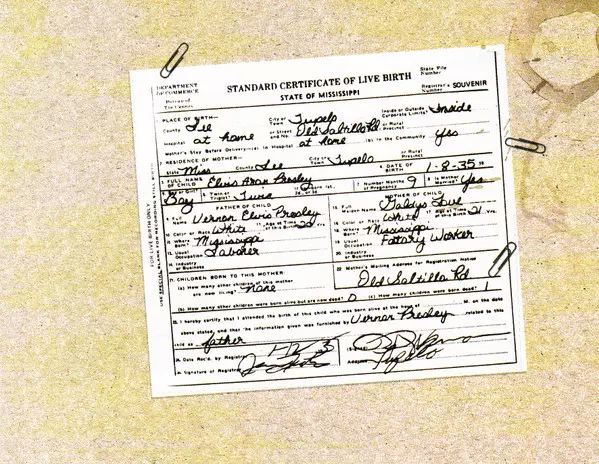 DEPARTMENT OF COMMERCE
STANDARD CERTIFICATE OF LIVE BIRTH
State File Number
Bureau of The Census
STATE OF MISSISSIPPI
Registrar's Number SOUVENIR
PLACE OF BIRTH—
County Lee City or Town Tupelo Inside or Outside Corporate Limits? Inside
Hospital at home or Street and No. Old Saltillo Rd or Rural Precinct
Mother's Stay Before Delivery:—In Hospital at home In the Community yes
2 RESIDENCE OF MOTHER—
State Miss County Lee City or Town Tupelo or Rural Precinct
3 FULL NAME OF CHILD Elvis Aron Presley 4 DATE OF BIRTH 1-8-35 19
Boy or Girl? Boy 6 Twin or Triplet? Twin 7 Number Months of Pregnancy 9 8 Is Mother Married? Yes
FATHER OF CHILD
9 Full Name Vernon Elvis Presley
10 Color or Race White 11 Age at Time of this Birth Yrs.
12 Where Born? Mississippi
13 Usual Occupation Laborer
14 Industry or Business
MOTHER OF CHILD
15 Full Maiden Name Gladys Love
16 Color or Race White 17 Age at Time of this Birth 21 Yrs.
18 Where Born? Mississippi
19 Usual Occupation Factory Worker
20 Industry or Business
21 CHILDREN BORN TO THIS MOTHER
(a) How many other children of this mother are now living? none
22 Mother's Mailing Address for Registration Notice
Old Saltillo Rd
(b) How many other children were born alive but are now dead? 0 (c) How many children were born dead? 1
23. I hereby certify that I attended the birth of this child who was born alive at the hour of M. on the date
above stated, and that the information given was furnished by Vernon Presley related to this
child as father
24. Date Rec'd. by Registrar
(Signed)
25. Signature of Registrar
Address Tupelo
FOR LIVE BIRTH ONLY
USE SPECIAL BLANK FOR RECORDING STILL BIRTH